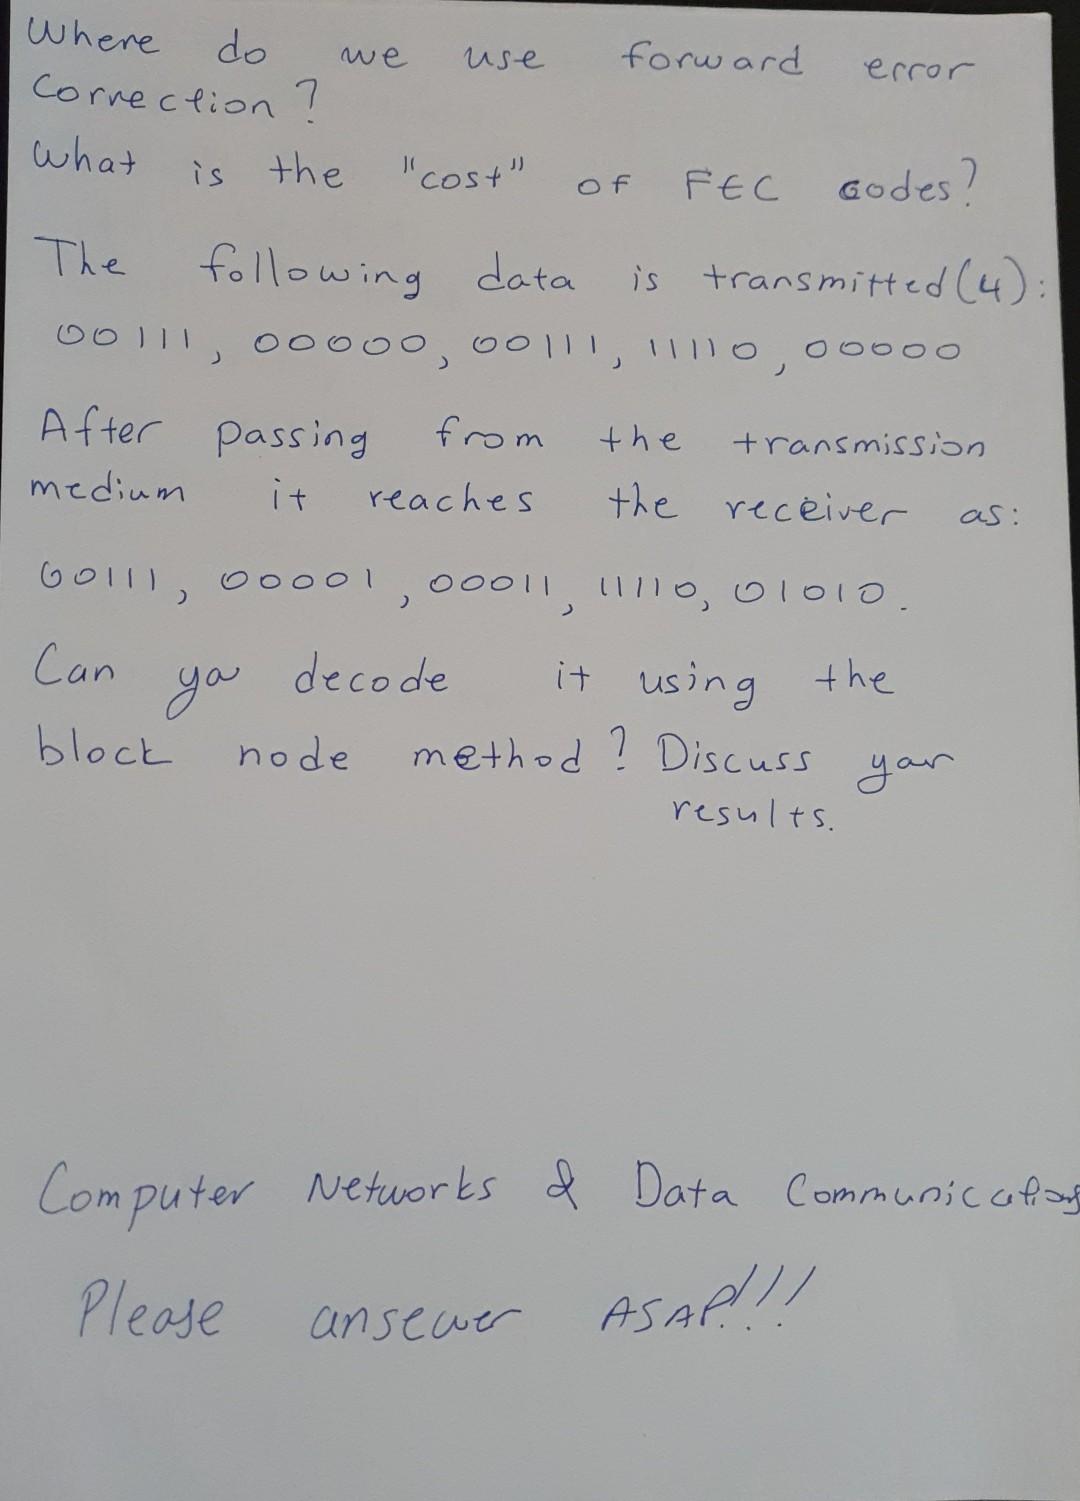 Where do we use forward error
Correction?
What is the "cost" of FEC codes?
The following data is transmitted (4):
00111, 00000, 00111, 11110, 00000
After passing from the transmission
medium it reaches the receiver as:
00111, 00001, 00011, 11110, 01010.
Can you decode it using the
block node method? Discuss your
results.
Computer Networks & Data Communications
Please ansewer ASAP!!!